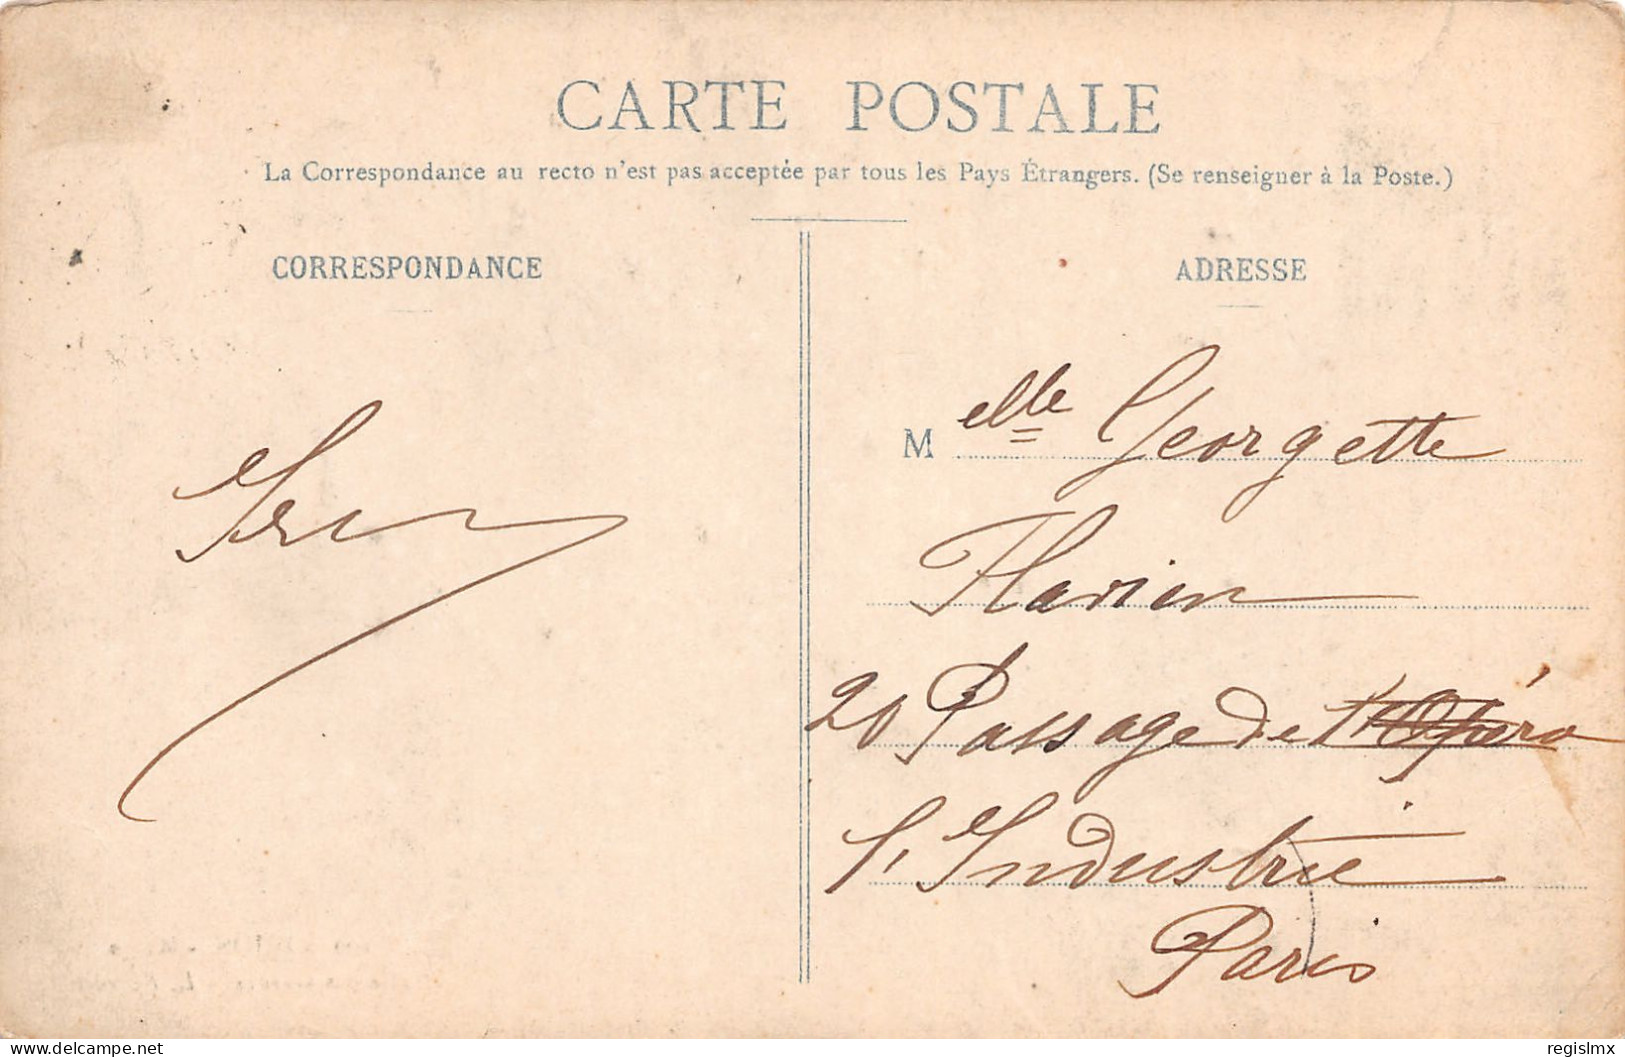 CARTE POSTALE
La Correspondance au recto n'est pas acceptée par tous les Pays Étrangers. (Se renseigner à la Poste.)
CORRESPONDANCE
ADRESSE
Melle Georgette
Flavien
20 Passage de l'Opéra
l'Industrie
Paris
delcampe.net
regislmx